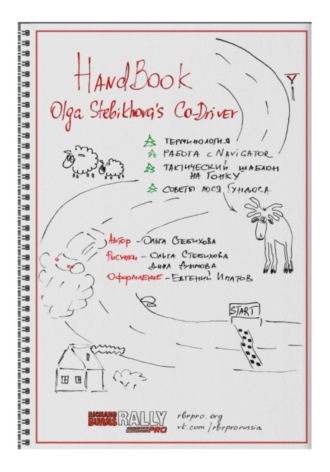 HandBook
Olga Stebikhova's Co-Driver
Терминология
Работа с Navigator
Тактический шаблон
на гонку
Советы лося Гундоса
Автор - Ольга Стебихова
Рисунки - Ольга Стебихова
Оформление - Евгений Ипатов
START
RICHARD BURNS RALLY
PRO
rbrpro.org
vk.com/rbrprorussia